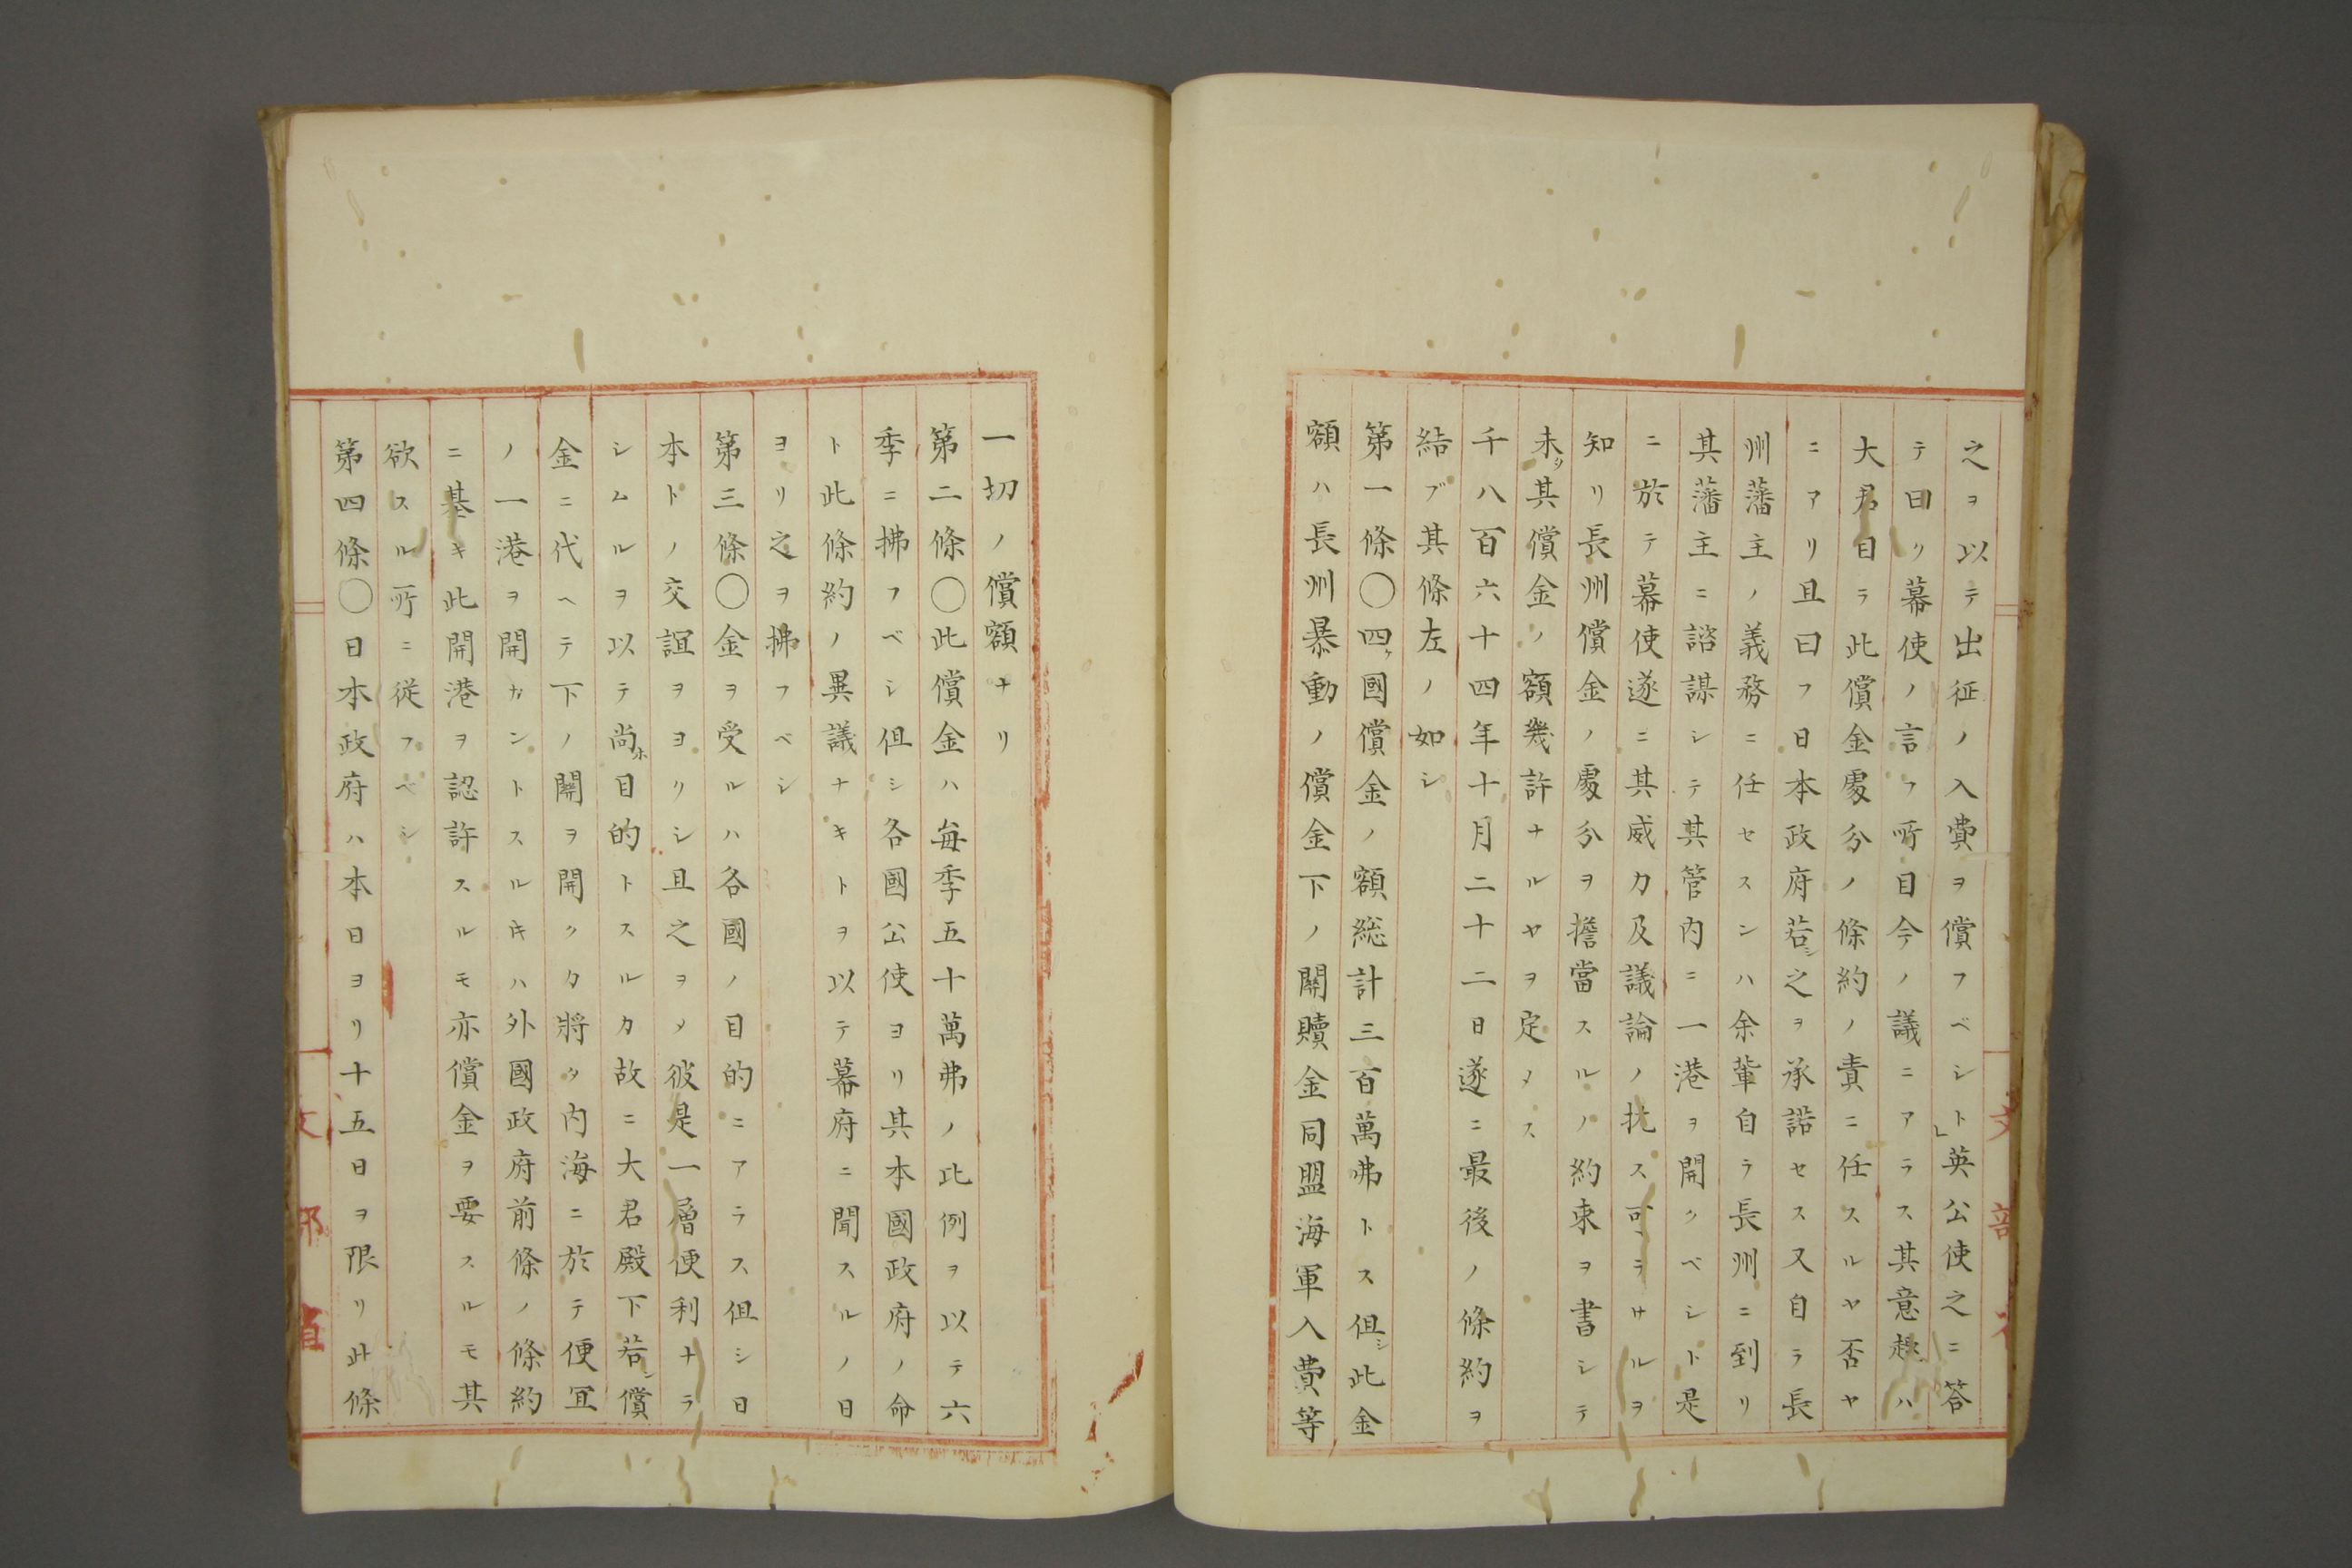 之ヲ以テ出征ノ入費ヲ償フベシト」英公使之ニ答
テ曰ク幕使ノ言フ所目今ノ議ニアラス其意趣ハ
大君自ラ此償金處分ノ條約ノ責ニ任スルヤ否ヤ
ニアリ且曰フ日本政府若シ之ヲ承諾セス又自ラ長
州藩主ノ義務ニ任セスンハ余輩自ラ長州ニ到リ
其藩主ニ諮謀シテ其管内ニ一港ヲ開クベシト是
ニ於テ幕使遂ニ其威力及議論ノ抗ス可ラサルヲ
知リ長州償金ノ處分ヲ擔當スルノ約束ヲ書シテ
未タ其償金ノ額幾許ナルヤヲ定メス
千八百六十四年十月二十二日遂ニ最後ノ條約ヲ
結ブ其條左ノ如シ
第一條〇四ヶ國償金ノ額総計三百萬弗トス但シ此金
額ハ長州暴動ノ償金下ノ關贖金同盟海軍入費等
一切ノ償額ナリ
第二條〇此償金ハ毎季五十萬弗ノ比例ヲ以テ六
季ニ拂フベシ但シ各國公使ヨリ其本國政府ノ命
ト此條約ノ異議ナキトヲ以テ幕府ニ聞スルノ日
ヨリ之ヲ拂フベシ
第三條〇金ヲ受ルハ各國ノ目的ニアラス但シ日
本トノ交誼ヲヨクシ且之ヲメ彼是一層便利ナラ
シムルヲ以テ尚ホ目的トスルカ故ニ大君殿下若シ償
金ニ代ヘテ下ノ關ヲ開クカ將タ内海ニ於テ便宜
ノ一港ヲ開カントスルキハ外國政府前條ノ條約
ニ基キ此開港ヲ認許スルモ亦償金ヲ要スルモ其
欲スル所ニ従フベシ
第四條〇日本政府ハ本日ヨリ十五日ヲ限リ此條
文部省